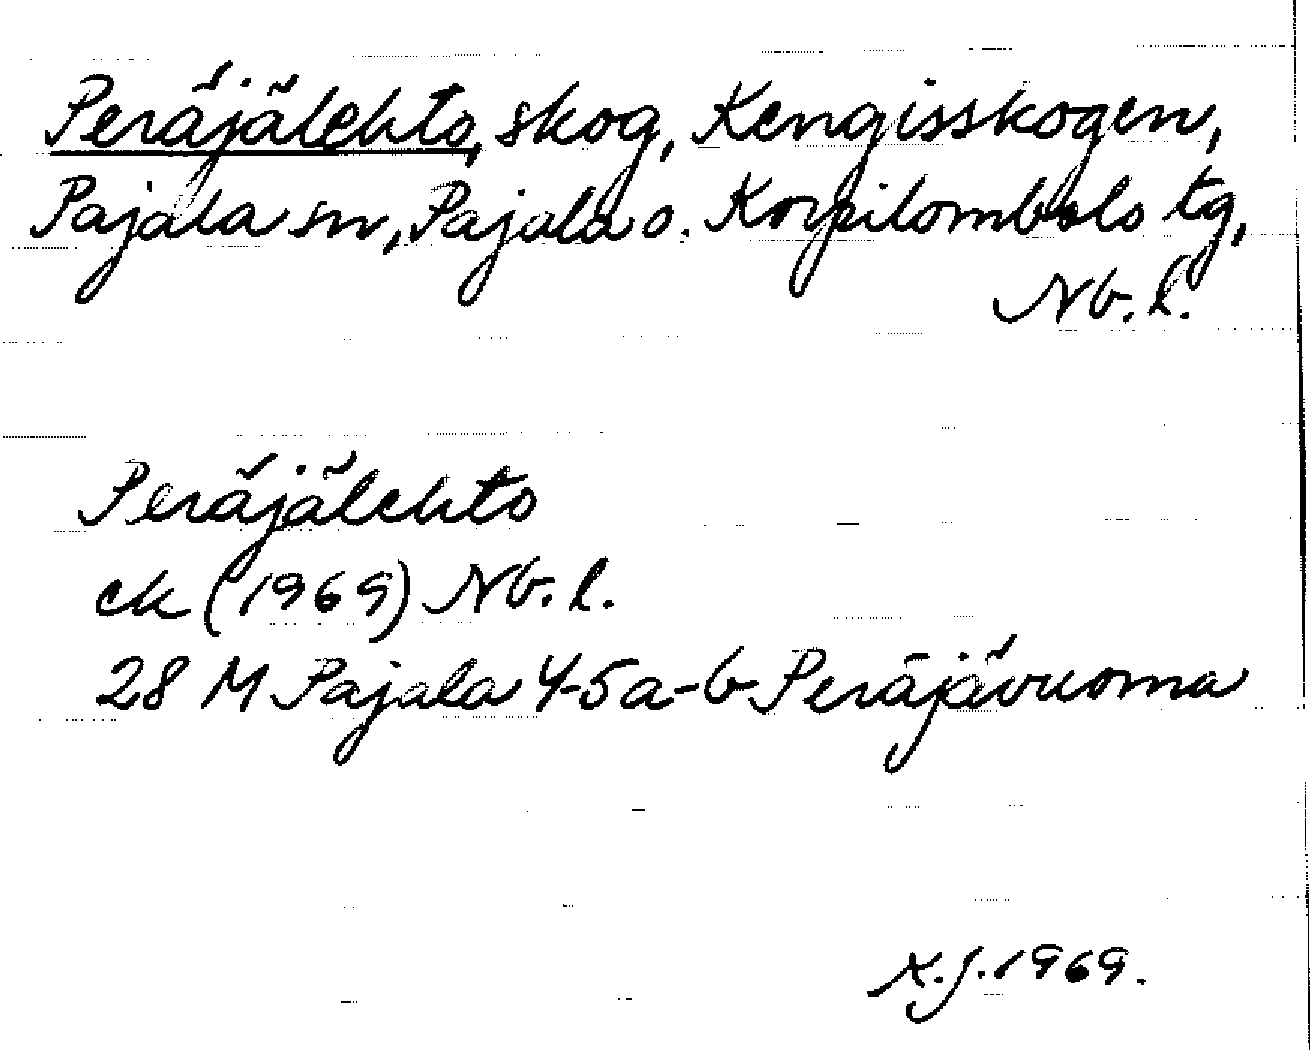 Peräjälehto, skog, Kengisskogen,
Pajala sn, Pajala o. Korpilombolo tg,
Nb. l.
Peräjälehto
ek (1969) Nb. l.
28 M Pajala 4-5a-b Peräjävuoma
1969.